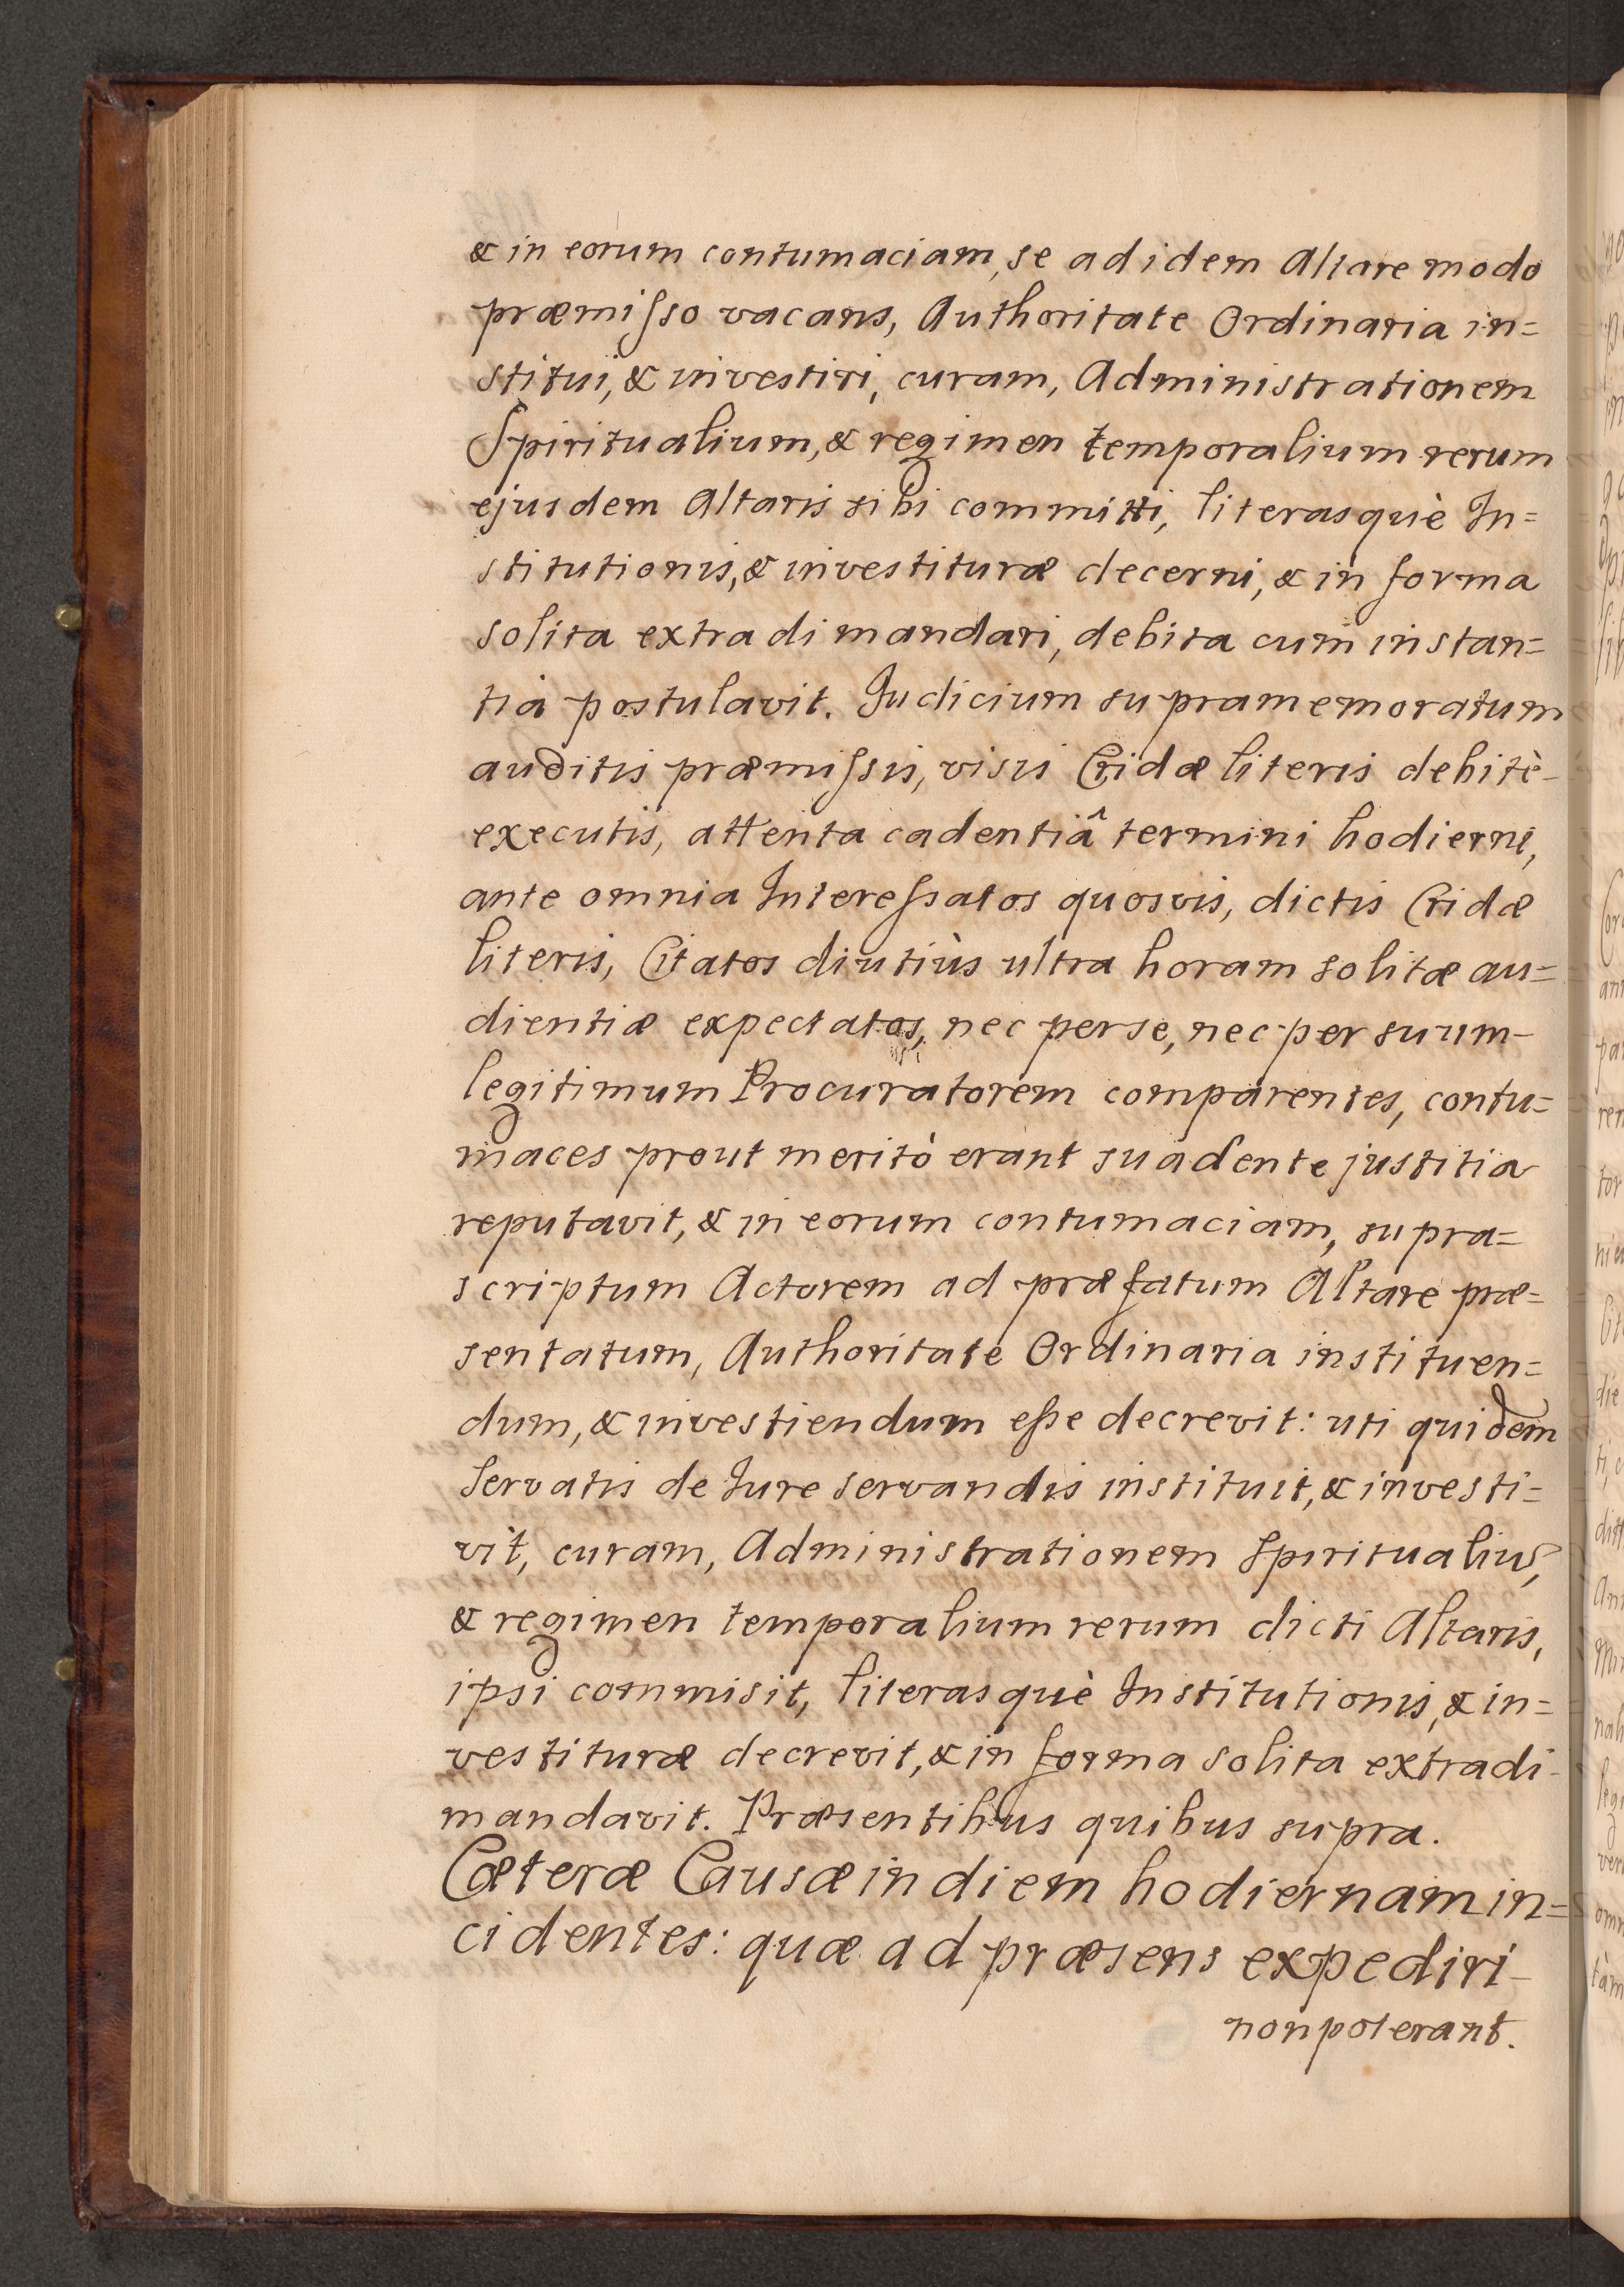 & in eorum contumaciam, se ad idem Altare modo
præmiſso vacans, Authoritate Ordinaria in=
stitui, & investiri, curam, Administrationem
Spiritualium, & regimen temporalium rerum
ejusdem Altaris sibi committi, literasquè In=
stitutionis, & investituræ decerni, & in forma
solita extradi mandari, debita cum instan=
tia postulavit. Judicium supramemoratum
auditis præmiſsis, visis Cridæ literis debitè
executis, attenta cadentiâ termini hodierni,
ante omnia Intereſsatos quosvis, dictis Cridæ
literis, Citatos diutiùs ultra horam solitæ au=
dientiæ expectatos, nec per se, nec per suum
legitimum Procuratorem comparentes, contu=
maces prout meritò erant suadente justitia
reputavit, & in eorum contumaciam, supra=
scriptum Actorem ad præfatum Altare præ=
sentatum, Authoritate Ordinaria instituen=
dum, & investiendum eſse decrevit: uti quidem
servatis de Jure servandis instituit, & investi=
vit, curam, Administrationem Spiritualiũ,
& regimen temporalium rerum dicti Altaris,
ipsi commisit, literasquè Institutionis, & in=
vestituræ decrevit, & in forma solita extradi
mandavit. Præsentibus quibus supra.
Cæteræ Causæ in diem hodiernam in=
cidentes: quæ ad præsens expediri
non poterant.